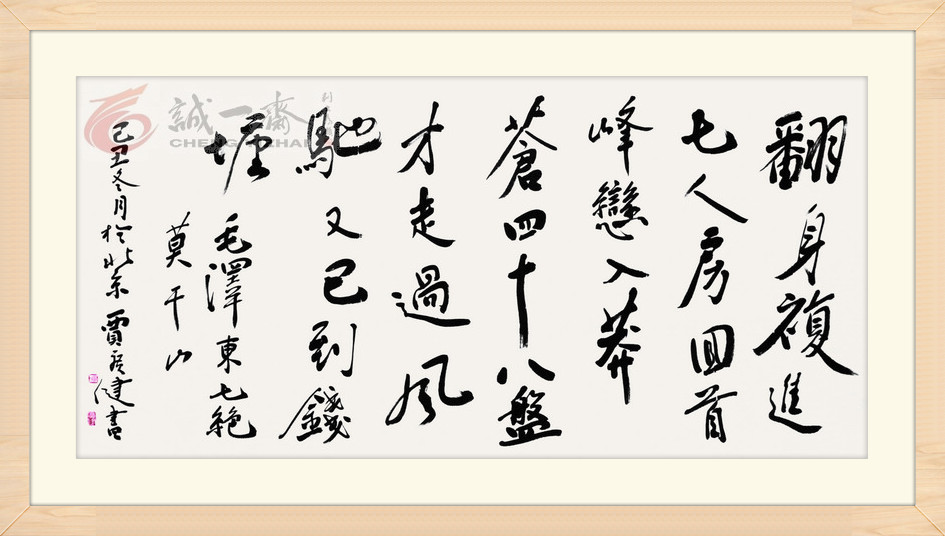 翻身複進
七人房回首
峰戀入莽
蒼四十八盤
才走過風
馳又已到錢
塘毛澤東七絕
莫干山
己丑冬月於北京賈彥健書
誠一齋